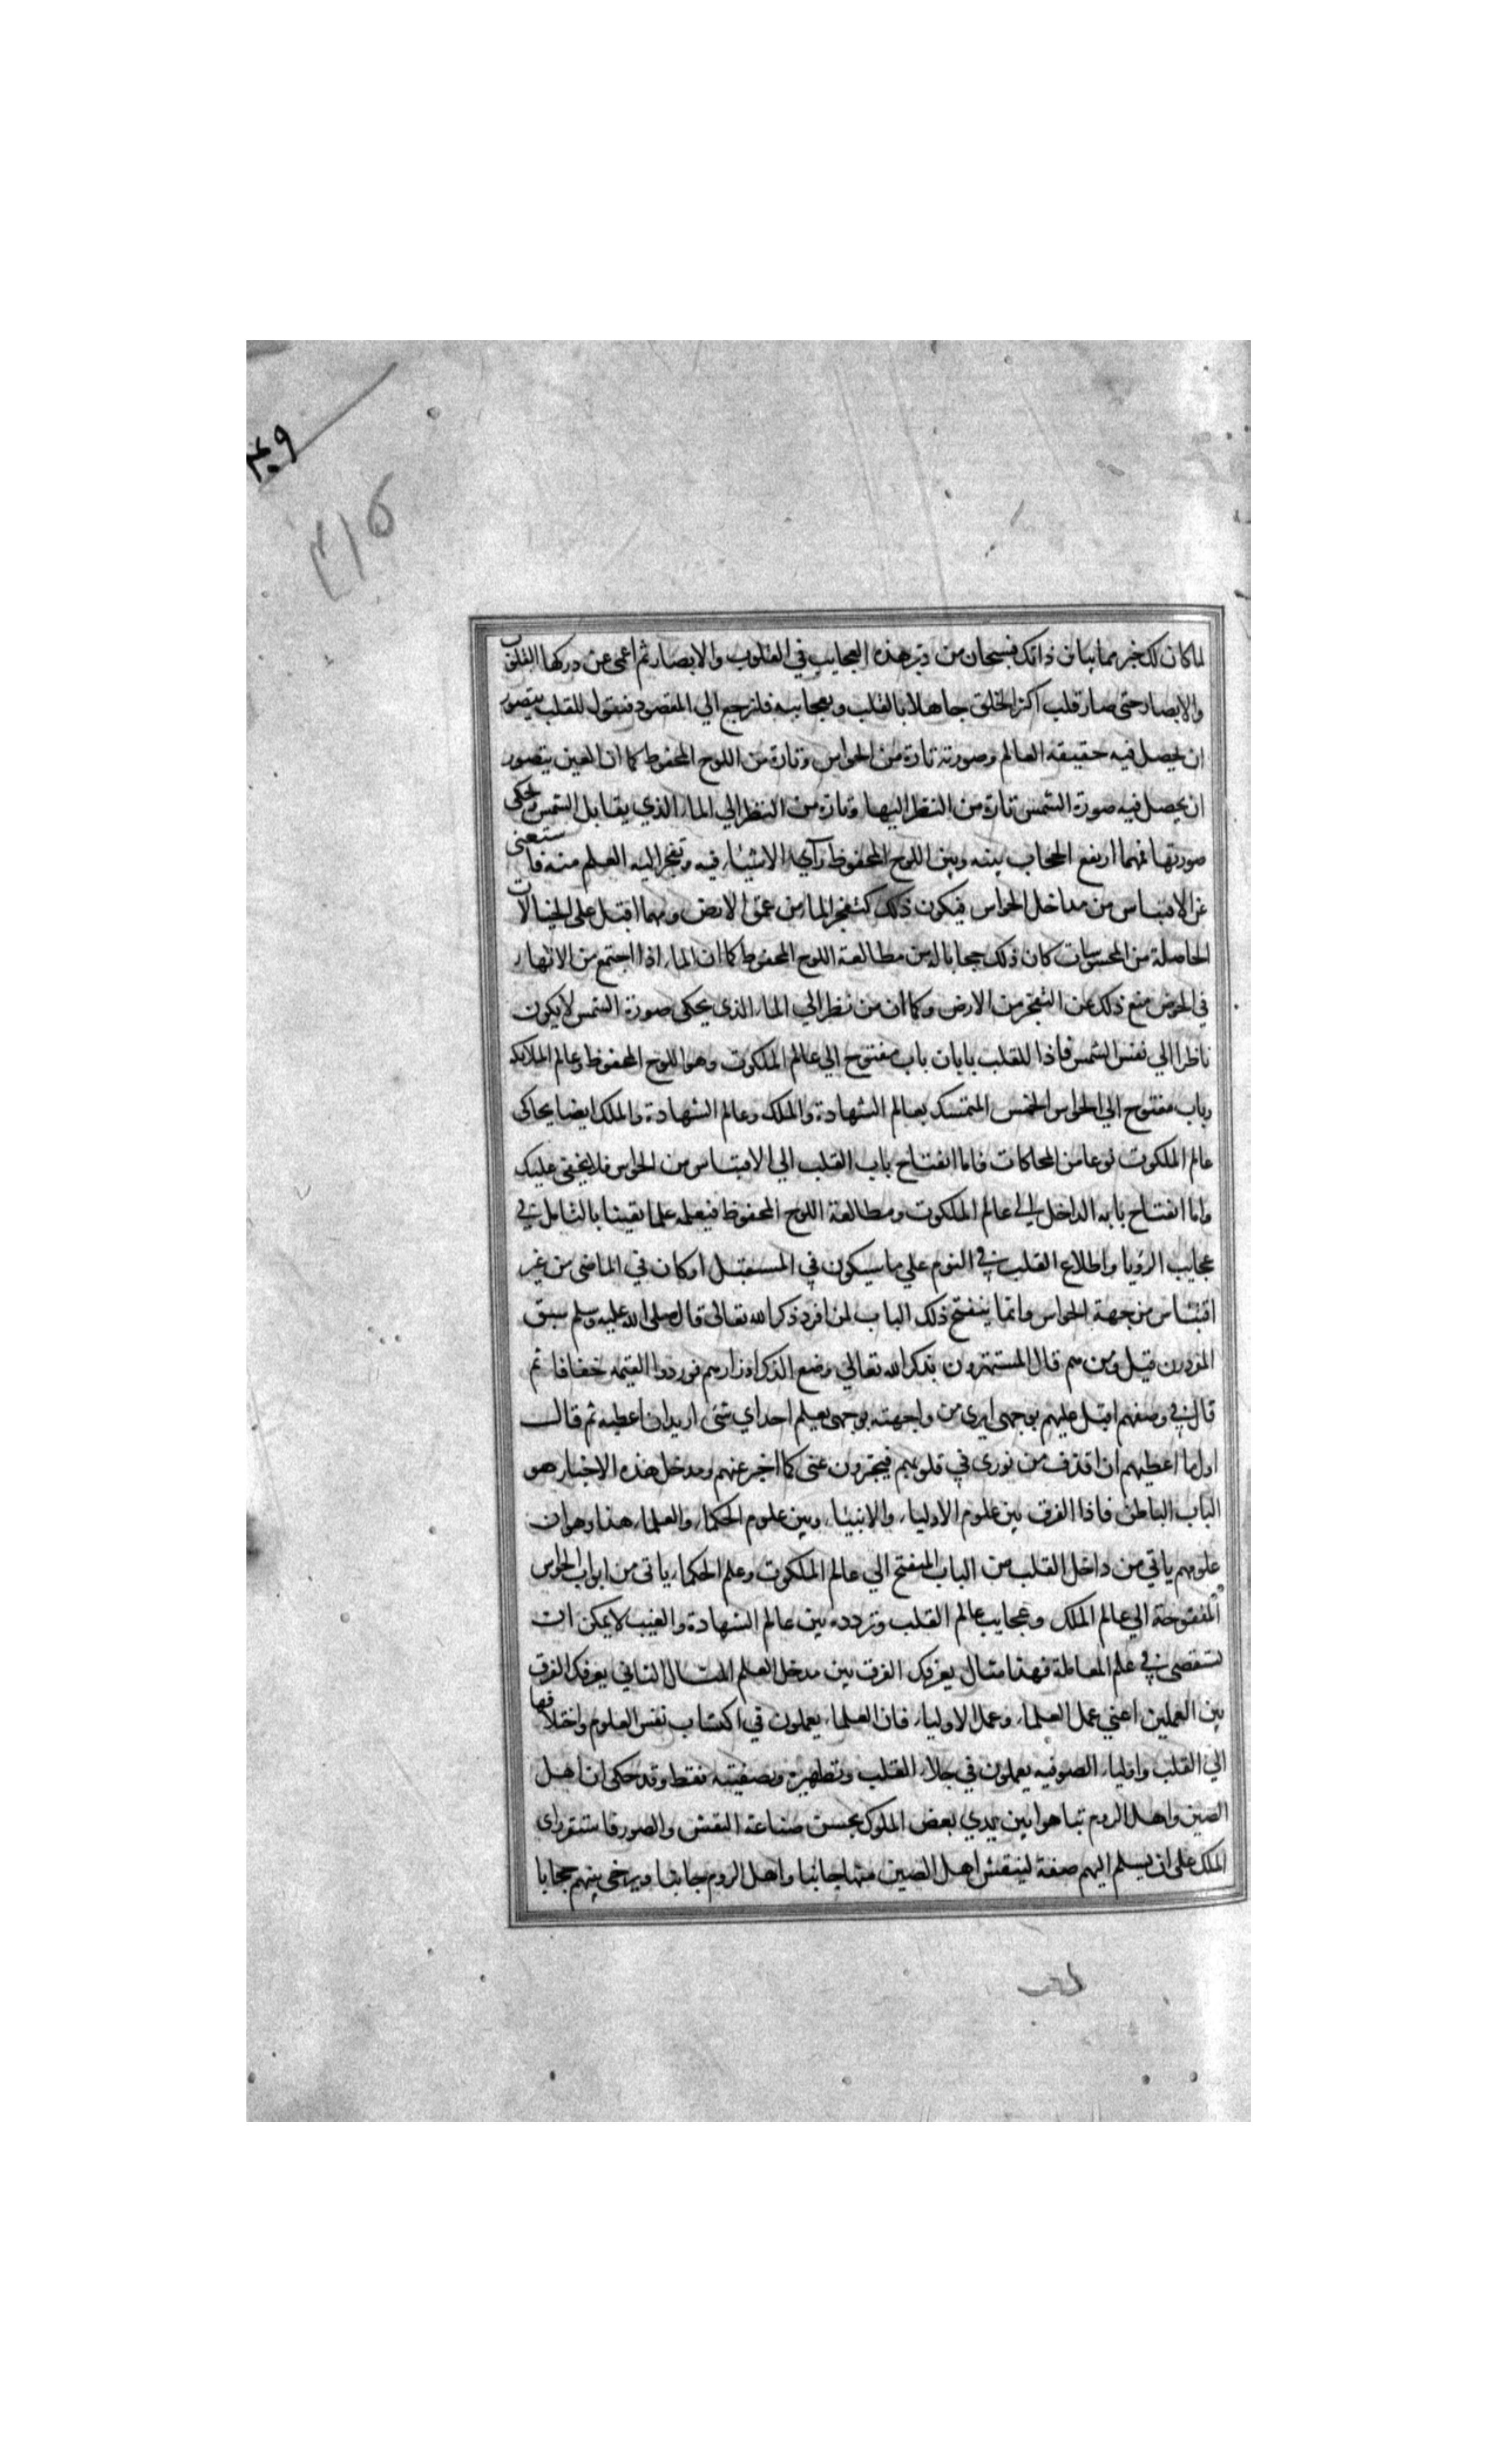 ٣٠٩
٣١٥
لما كان لك خبر مما يباين ذاتك فسبحان من دبر هذه العجايب في القلوب والابصار ثم اعمى عن دركها القلوب
والابصار حتى صار قلب اكثر الخلق جاهلا بالقلب وبعجايبه فلنرجع الي المقصود فنقول للقلب يتصور
ان يحصل فيه حقيقة العالم وصورته تارة من الحواس وتارة من اللوح المحفوظ كما ان العين يتصور
ان يحصل فيه صورة الشمس تارة من النظر اليها وتارة من النظر الي الماء الذي يقابل الشمس ويحكى
صورتها فمهما ارتفع الحجاب بينه وبين اللوح المحفوظ رآي الاشياء فيه وتفجر اليه العلم منه فاستغنى
عن الاقتباس من مداخل الحواس فيكون ذلك كتفجر الماء من عمق الارض ومهما اقبل على الخيالات
الحاصلة من المحسوسات كان ذلك حجابا له من مطالعة اللوح المحفوظ كما ان الماء اذا اجتمع من الانهار
في الحوض منع ذلك عن التفجر من الارض وكما ان من نظر الي الماء الذي يحكى صورة الشمس لا يكون
ناظرا الي نفس الشمس فاذا للقلب بابان باب مفتوح الي عالم الملكوت وهو اللوح المحفوظ وعالم الملايكه
وباب مفتوح الي الحواس الخمس المتمسك بعالم الشهادة والملك وعالم الشهادة والملك ايضا يحاكى
عالم الملكوت نوعا من المحاكات فاما انفتاح باب القلب الي الاقتباس من الحواس فلا يخفى عليك
واما انفتاح بابه الداخل الي عالم الملكوت ومطالعة اللوح المحفوظ فيعلمه علما يقينا بالتامل في
عجايب الرؤيا واطلاع القلب في النوم علي ما سيكون في المستقبل او كان في الماضى من غير
اقتباس من جهة الحواس وانما ينفتح ذلك الباب لمن افرد ذكر الله تعالى قال صلى الله عليه وسلم سبق
المفردون قيل ومن هم قال المستهترون بذكر الله تعالي وضع الذكر اوزارهم فوردوا القيمه خفافا ثم
قال في وصفهم اقبل عليهم بوجهى ايرى من واجهته بوجهى يعلم احد اي شئ اريد ان اعطيه ثم قال
اول ما اعطيهم ان اقذف من نورى في قلوبهم فيخبرون عنى كما اخبر عنهم ومدخل هذه الاخبار هو
الباب الباطن فاذا الفرق بين علوم الاولياء والانبياء وبين علوم الحكماء والعلماء هذا وهو ان
علومهم ياتي من داخل القلب من الباب المنفتح الي عالم الملكوت وعلم الحكماء ياتى من ابواب الحواس
المفتوحة الي عالم الملك وعجايب عالم القلب وتردده بين عالم الشهادة والغيب لا يمكن ان
تستقصى في علم المعاملة فهذا مثال يعرفك الفرق بين مدخل العلم المثال الثاني يعرفك الفرق
بين العملين اعني عمل العلماء وعمل الاولياء فان العلماء يعملون في اكتساب نفس العلوم واختلافها
الي القلب واولياء الصوفيه يعملون في جلاء القلب وتطهيره وتصفيته فقط وقد حكى ان اهل
الصين واهل الروم تباهوا بين يدي بعض الملوك بحسن صناعة النقش والصور فاستقر راى
الملك على ان يسلم اليهم صفة لينقش اهل الصين منها جانبا واهل الروم جانبا ويرخى بينهم حجابا